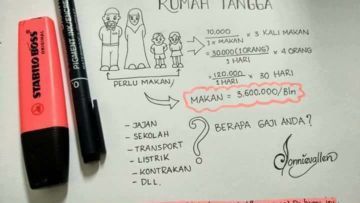 RUMAH TANGGA
10.000
1 x MAKAN
× 3 KALI MAKAN
= 30.000 (1 ORANG)
1 HARI
× 4 ORANG
= 120.000
1 HARI
× 30 HARI
PERLU MAKAN
MAKAN = 3.600.000/Bln
- JAJAN
- SEKOLAH
- TRANSPORT
- LISTRIK
- KONTRAKAN
- DLL.
?
BERAPA GAJI ANDA?
Jonnievallen
STABILO BOSS
ORIGINAL